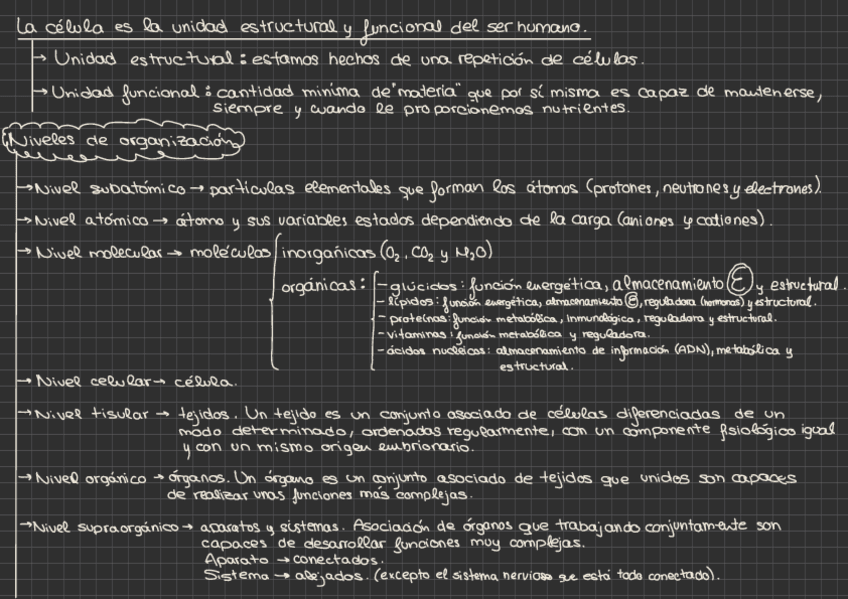 La célula es la unidad estructural y funcional del ser humano.
→ Unidad estructural: estamos hechos de una repetición de células.
→ Unidad funcional: cantidad mínima de "materia" que por sí misma es capaz de mantenerse,
siempre y cuando le proporcionemos nutrientes.
Niveles de organización
→ Nivel subatómico → partículas elementales que forman los átomos (protones, neutrones y electrones).
→ Nivel atómico → átomo y sus variables estados dependiendo de la carga (aniones y cationes).
→ Nivel molecular → moléculas inorgánicas (O₂, CO₂ y H₂O)
orgánicas: - glúcidos: función energética, almacenamiento E y estructural.
- lípidos: función energética, almacenamiento E, reguladora (hormonas) y estructural.
- proteínas: función metabólica, inmunológica, reguladora y estructural.
- vitaminas: función metabólica y reguladora.
- ácidos nucleicos: almacenamiento de información (ADN), metabólica y
estructural.
→ Nivel celular → célula.
→ Nivel tisular → tejidos. Un tejido es un conjunto asociado de células diferenciadas de un
modo determinado, ordenadas regularmente, con un componente fisiológico igual
y con un mismo origen embrionario.
→ Nivel orgánico → órganos. Un órgano es un conjunto asociado de tejidos que unidos son capaces
de realizar unas funciones más complejas.
→ Nivel supraorgánico → aparatos y sistemas. Asociación de órganos que trabajando conjuntamente son
capaces de desarrollar funciones muy complejas.
Aparato → conectados.
Sistema → alejados. (excepto el sistema nervioso que está todo conectado).